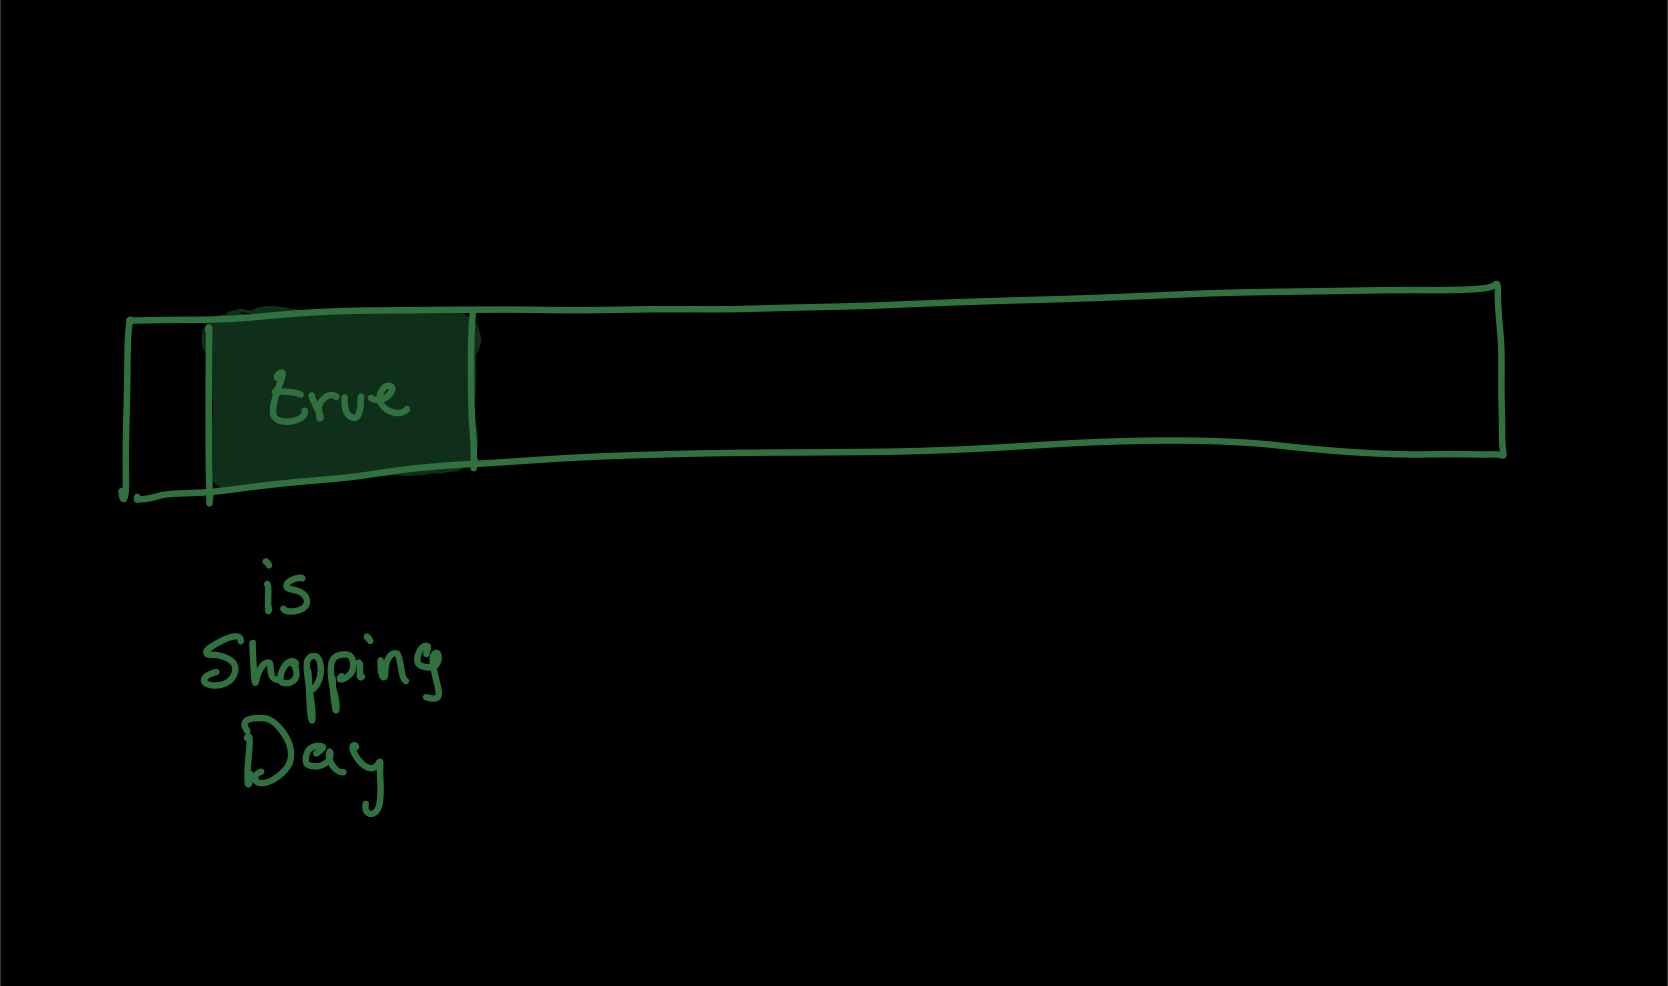 true
is
Shopping
Day